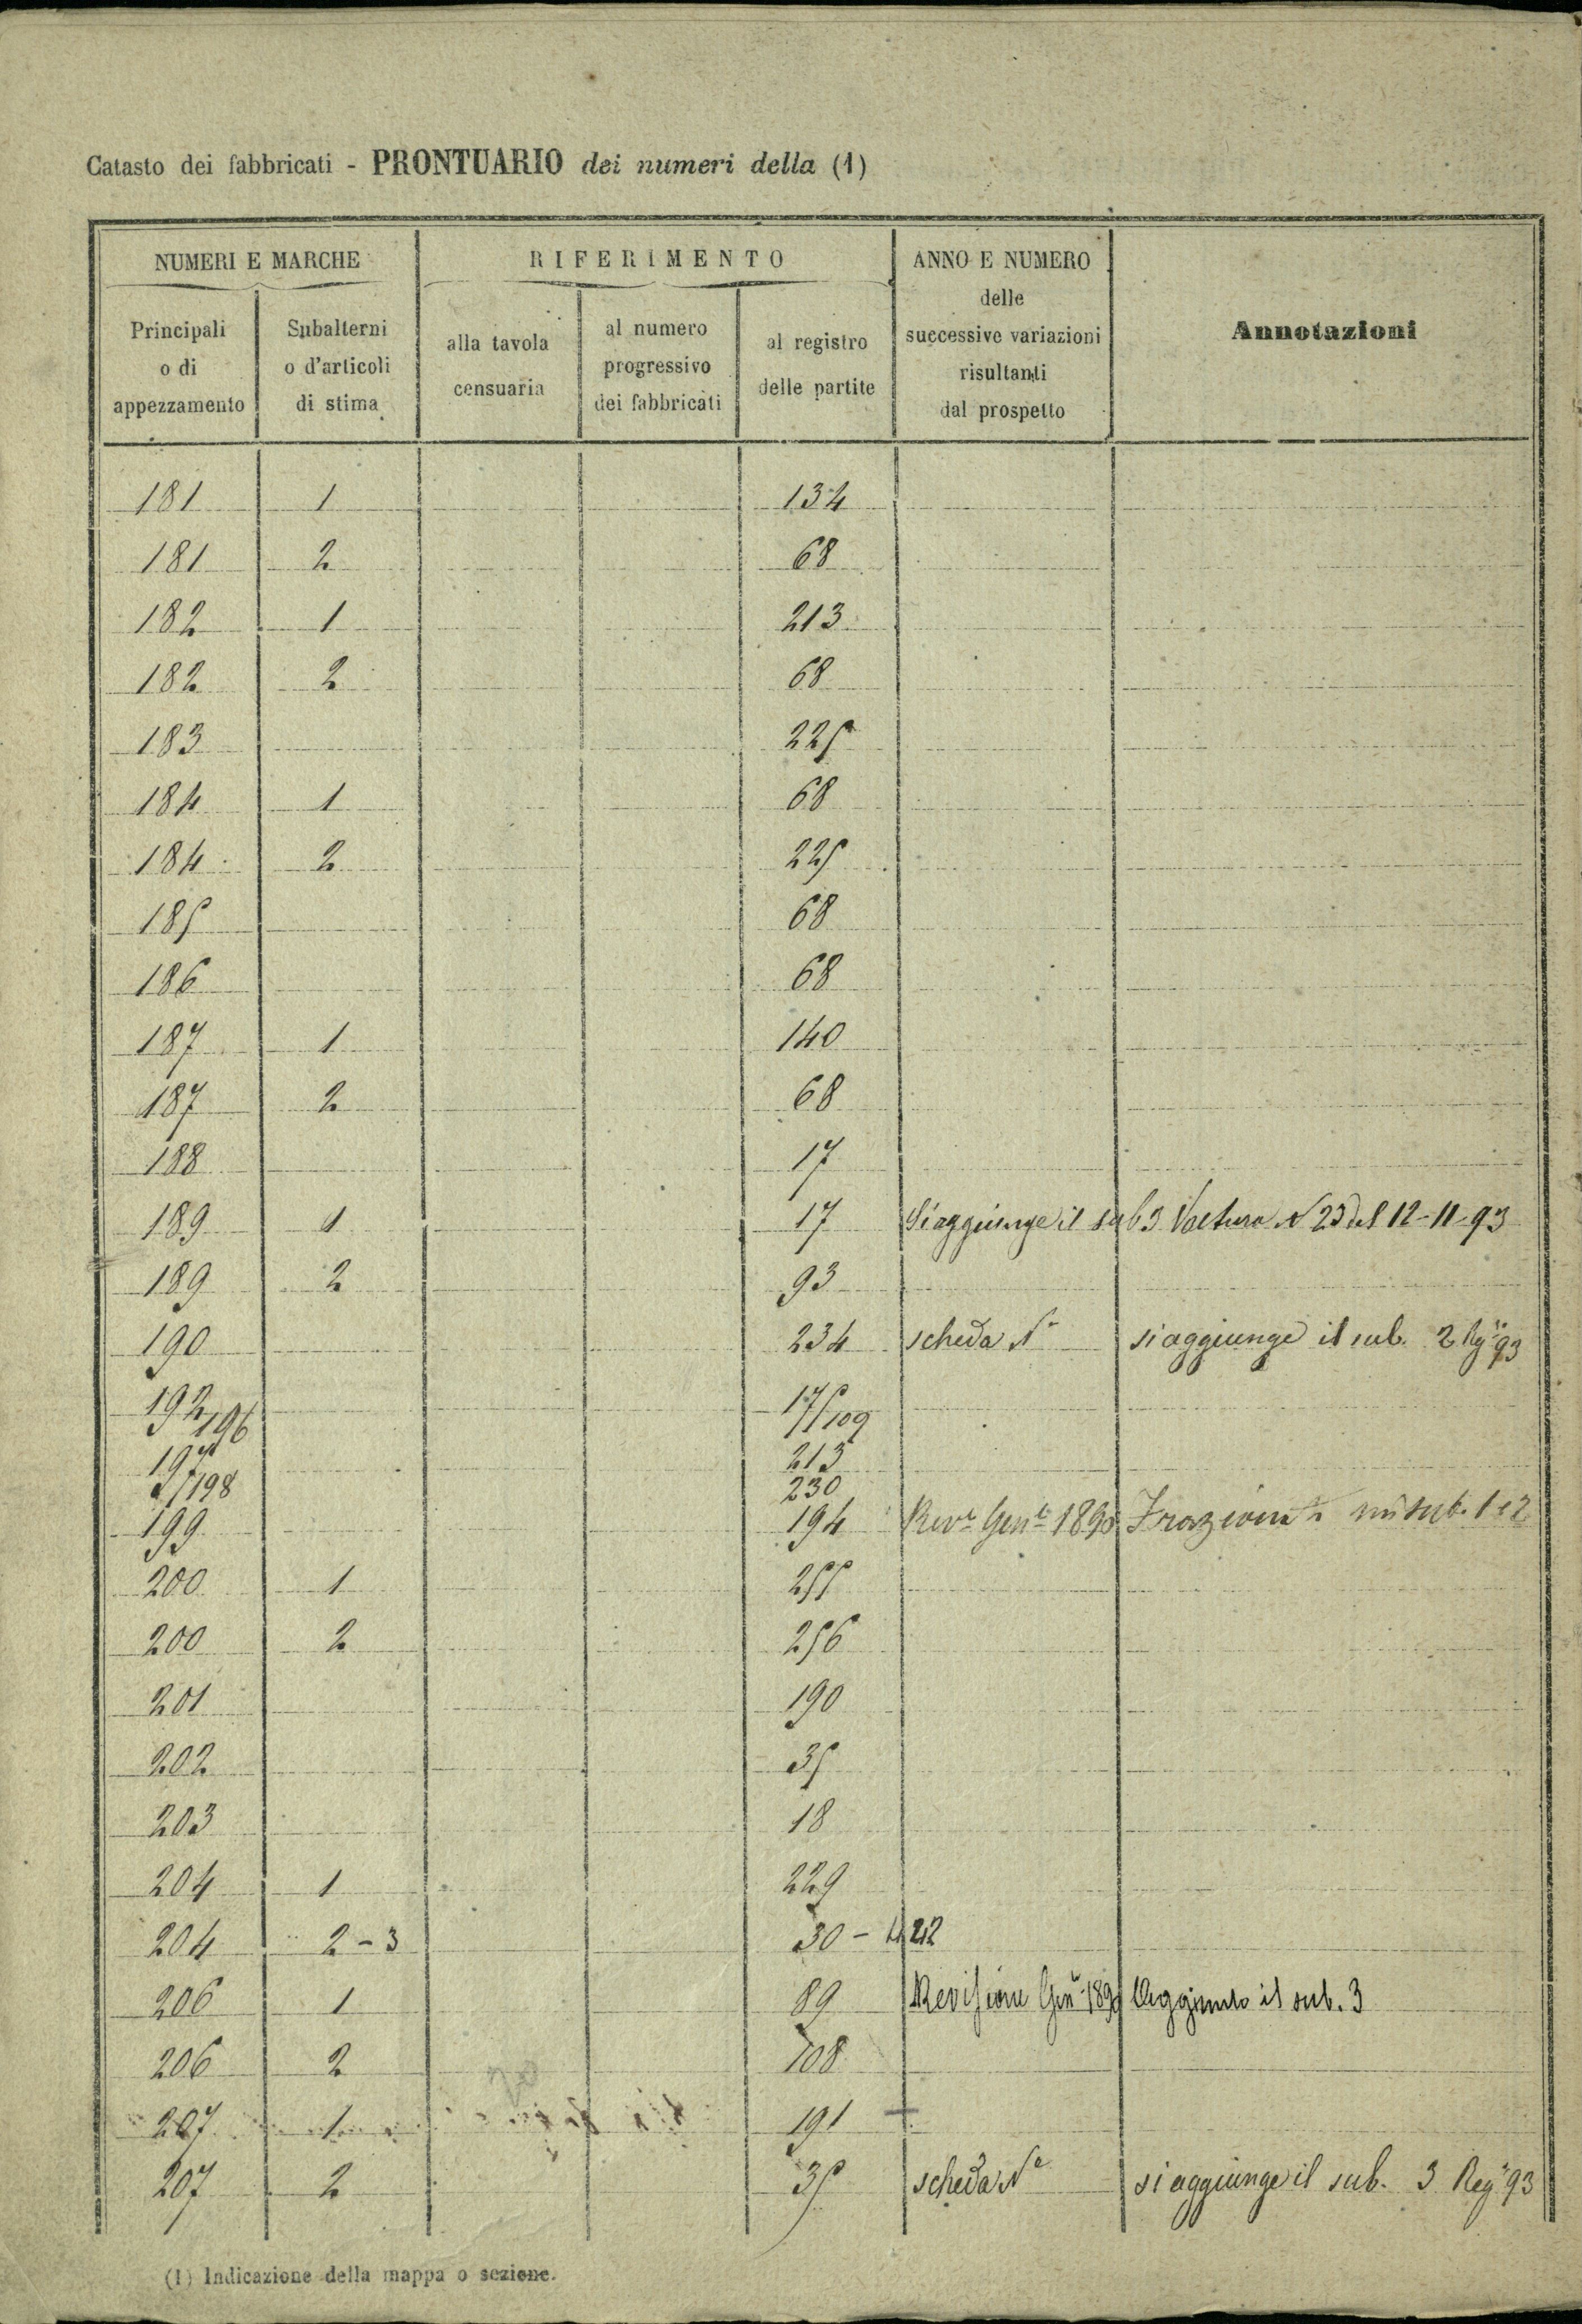 Catasto dei fabbricati - PRONTUARIO dei numeri della (1)
NUMERI E MARCHE
RIFERIMENTO
ANNO E NUMERO
delle
successive variazioni
risultanti
dal prospetto
Annotazioni
Principali
o di
appezzamento
Subalterni
o d'articoli
di stima
alla tavola
censuaria
al numero
progressivo
dei fabbricati
al registro
delle partite
181 1 134
181 2 68
182 1 213
182 2 68
183 225
184 1 68
184 2 225
185 68
186 68
187 1 140
187 2 68
188 17
189 1 17 Si aggiunge il sub 3 Voltura N 23 del 12-11-93
189 2 93
190 234 scheda N° si aggiunge il sub. 2 93
192 196 175/109
197 213
198 230
199 194 Reve Genle 1890 sub. 1 e 2
200 1 255
200 2 256
201 190
202 35
203 18
204 1 229
204 2-3 30 - 422
206 1 89 Revisione Gen 1890 Aggiunto il sub. 3
206 2 108
207 1 191
207 2 35 scheda N° si aggiunge il sub. 3 Reg 93
(1) Indicazione della mappa o sezione.